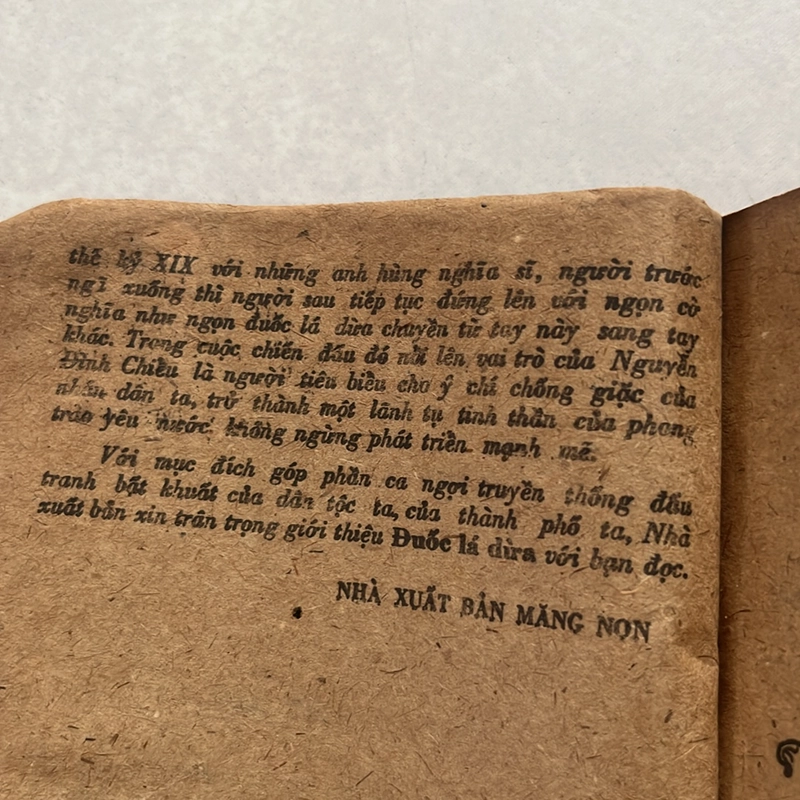 thế kỷ XIX với những anh hùng nghĩa sĩ, người trước
ngã xuống thì người sau tiếp tục đứng lên với ngọn cờ
nghĩa như ngọn đuốc lá dừa chuyền từ tay này sang tay
khác. Trong cuộc chiến đấu đó nổi lên vai trò của Nguyễn
Đình Chiểu là người tiêu biểu cho ý chí chống giặc của
nhân dân ta, trở thành một lãnh tụ tinh thần của phong
trào yêu nước không ngừng phát triển mạnh mẽ.
Với mục đích góp phần ca ngợi truyền thống đấu
tranh bất khuất của dân tộc ta, của thành phố ta, Nhà
xuất bản xin trân trọng giới thiệu Đuốc lá dừa với bạn đọc.
NHÀ XUẤT BẢN MĂNG NON